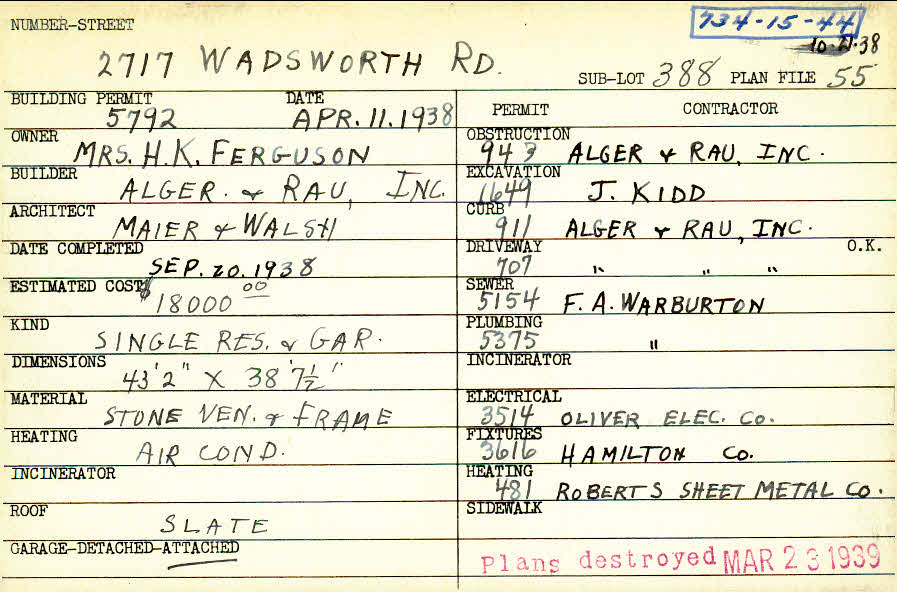 NUMBER-STREET
734-15-44
10.21.38
2717 WADSWORTH RD.
SUB-LOT 388 PLAN FILE 55
BUILDING PERMIT DATE
5792 APR. 11. 1938
OWNER
MRS. H. K. FERGUSON
BUILDER
ALGER. & RAU, INC.
ARCHITECT
MAIER & WALSH
DATE COMPLETED
SEP. 20. 1938
ESTIMATED COST
$18000 00
KIND
SINGLE RES. & GAR.
DIMENSIONS
43'2" X 38'7½"
MATERIAL
STONE VEN. & FRAME
HEATING
AIR COND.
INCINERATOR
ROOF
SLATE
GARAGE-DETACHED-ATTACHED
PERMIT CONTRACTOR
OBSTRUCTION
943 ALGER & RAU, INC.
EXCAVATION
1649 J. KIDD
CURB
911 ALGER & RAU, INC.
DRIVEWAY O.K.
707 " " "
SEWER
5154 F. A. WARBURTON
PLUMBING
5375 "
INCINERATOR
ELECTRICAL
3514 OLIVER ELEC. CO.
FIXTURES
3616 HAMILTON CO.
HEATING
481 ROBERTS SHEET METAL CO.
SIDEWALK
Plans destroyed MAR 23 1939